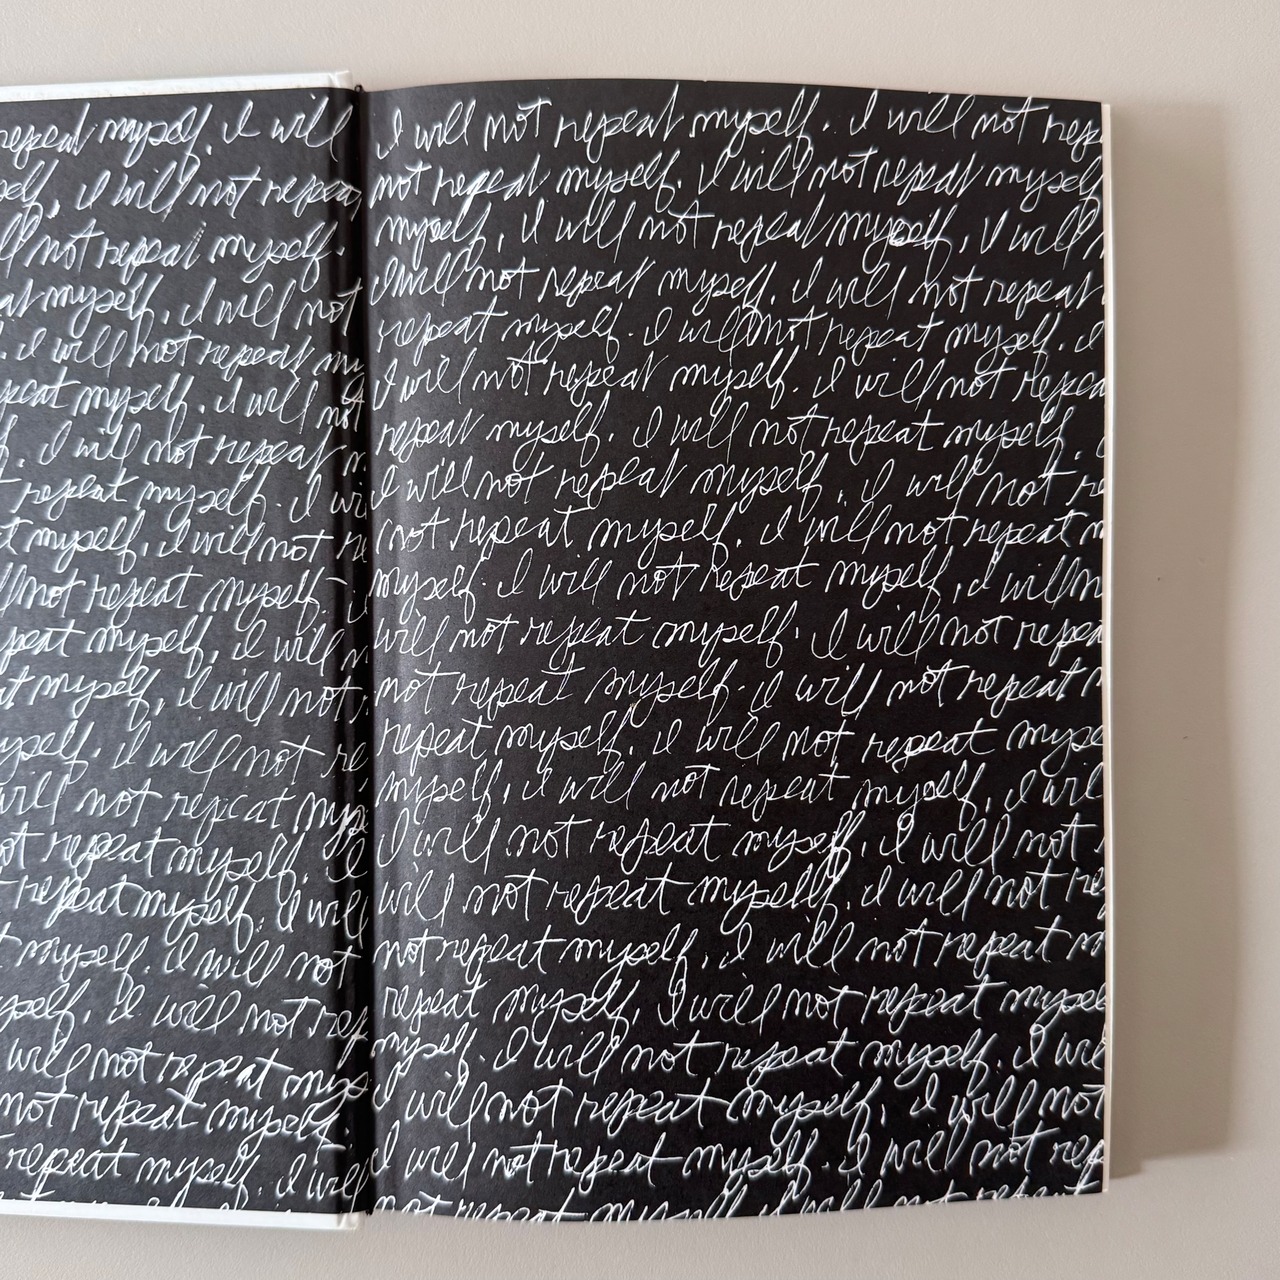 repeat myself. I will
self, I will not repeat
ll not repeat myself.
at myself, I will not
. I will not repeat my
epeat myself. I will not
f. I will not repeat m
t repeat myself. I wi
t myself, I will not re
ll not repeat myself.
peat myself, I will n
at myself, I will not
yself. I will not re
will not repeat myse
ot repeat myself. I
t repeat myself. I will
t myself. I will not
yself, I will not rep
will not repeat mys
not repeat myself.
repeat myself. I will
I will not repeat myself. I will not rep
not repeat myself. I will not repeat myself
myself, I will not repeat myself, I will n
I will not repeat myself. I will not repeat
repeat myself. I will not repeat myself. I
I will not repeat myself. I will not repea
repeat myself. I will not repeat myself.
I will not repeat myself, I will not re
not repeat myself. I will not repeat m
myself. I will not repeat myself, I will n
will not repeat myself. I will not repea
not repeat myself. I will not repeat m
repeat myself. I will not repeat myse
myself, I will not repeat myself, I wil
I will not repeat myself, I will not
will not repeat myself. I will not re
not repeat myself, I will not repeat m
repeat myself, I will not repeat mysel
myself. I will not repeat myself. I wil
I will not repeat myself, I will not
I will not repeat myself. I will not rep
not repeat myself. I will not repeat